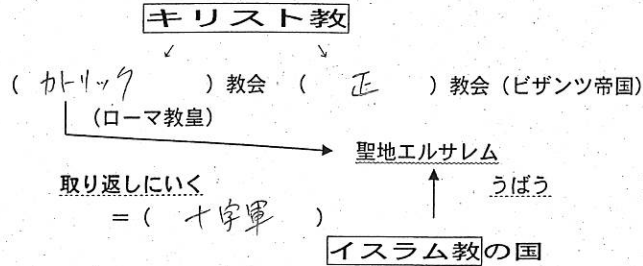 キリスト教
( カトリック ) 教会 ( 正 ) 教会 (ビザンツ帝国)
(ローマ教皇)
聖地エルサレム
取り返しにいく うばう
= ( 十字軍 )
イスラム教の国